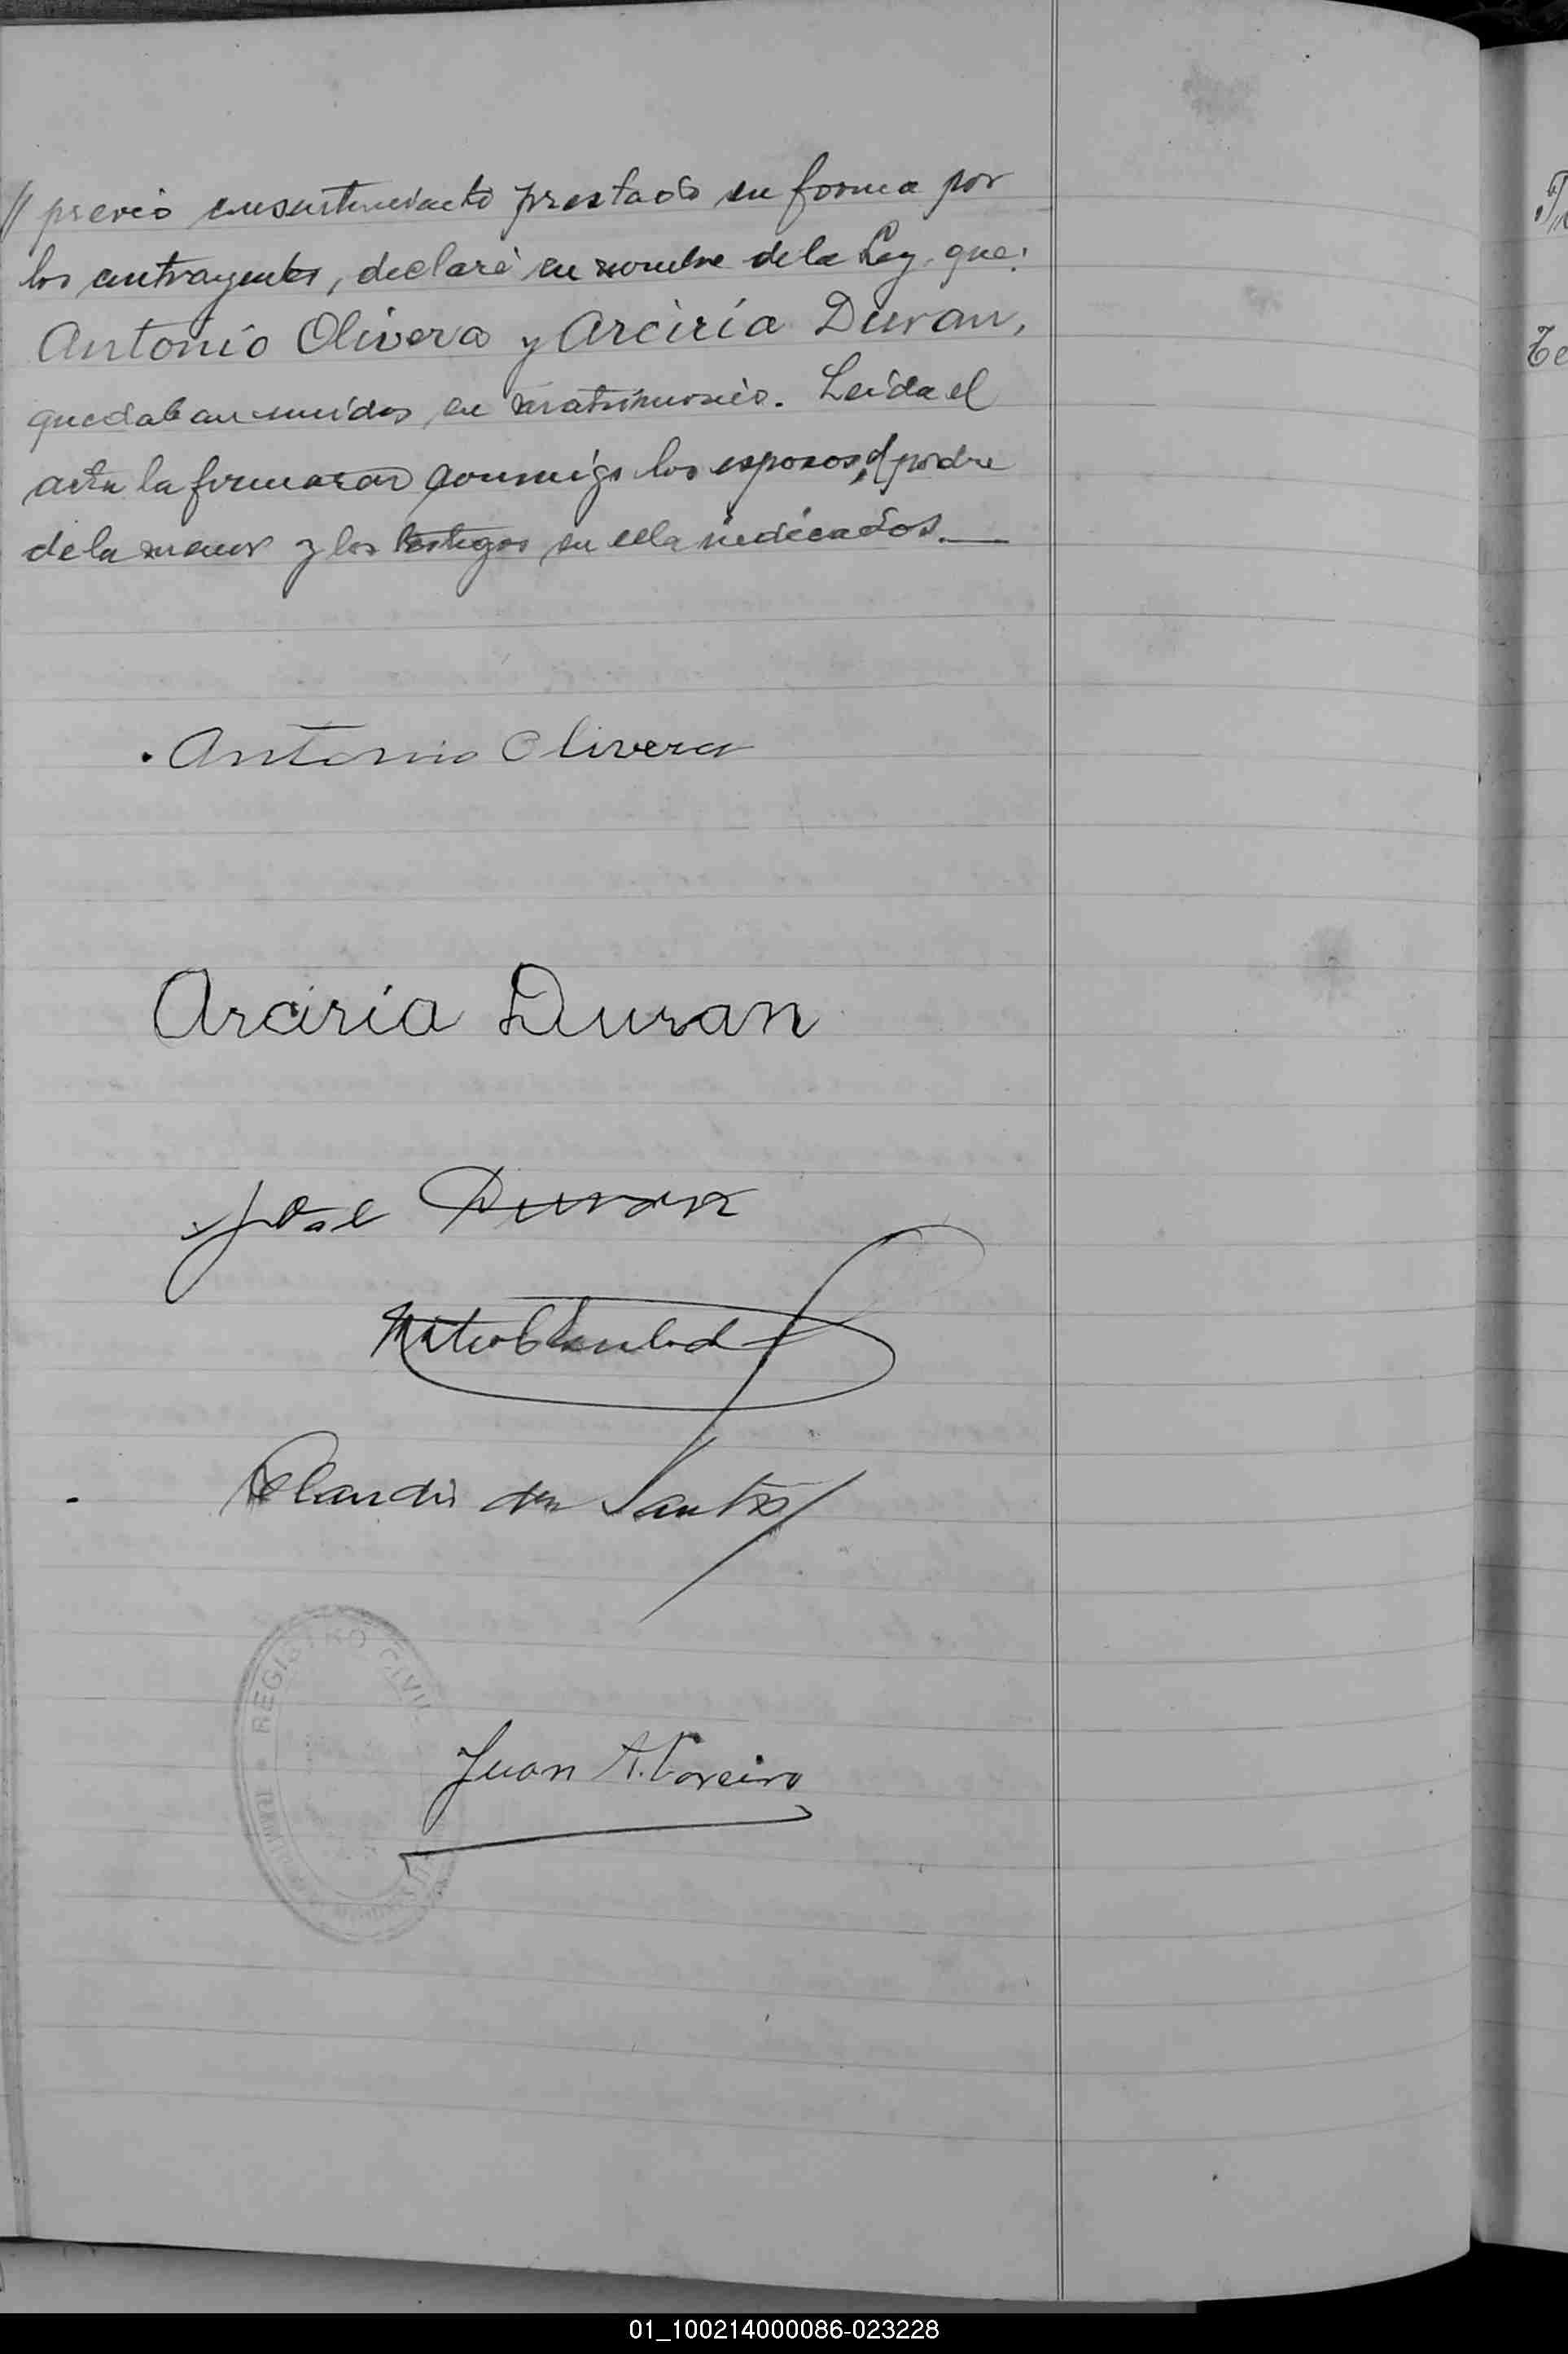 // previo consentimiento prestado en forma por
los contrayentes, declaré en nombre de la Ley que:
Antonio Olivera y Arciria Duran,
quedaban unidos en matrimonio. Leida el
acta la firmaron conmigo los esposos, el padre
de la menor y los testigos en ella indicados.—
Antonio Olivera
Arciria Duran
José Duran
Claudio dos Santos
REGISTRO CIVIL
Juan A.
01_100214000086-023228